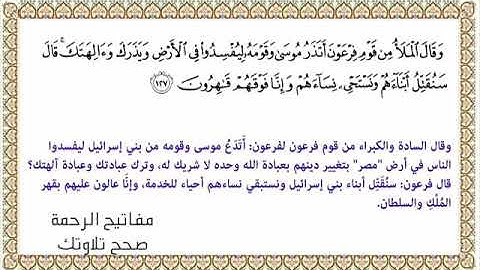 وَقَالَ ٱلْمَلَأُ مِن قَوْمِ فِرْعَوْنَ أَتَذَرُ مُوسَىٰ وَقَوْمَهُۥ لِيُفْسِدُوا۟ فِى ٱلْأَرْضِ وَيَذَرَكَ وَءَالِهَتَكَ ۚ قَالَ
سَنُقَتِّلُ أَبْنَآءَهُمْ وَنَسْتَحْىِۦ نِسَآءَهُمْ وَإِنَّا فَوْقَهُمْ قَـٰهِرُونَ ١٢٧
وقال السادة والكبراء من قوم فرعون لفرعون: أَتَدَعُ موسى وقومه من بني إسرائيل ليفسدوا
الناس في أرض "مصر" بتغيير دينهم بعبادة الله وحده لا شريك له، وترك عبادتك وعبادة آلهتك؟
قال فرعون: سنُقَتِّل أبناء بني إسرائيل ونستبقي نساءهم أحياء للخدمة، وإنَّا عالون عليهم بقهر
المُلْكِ والسلطان.
مفاتيح الرحمة
صحح تلاوتك